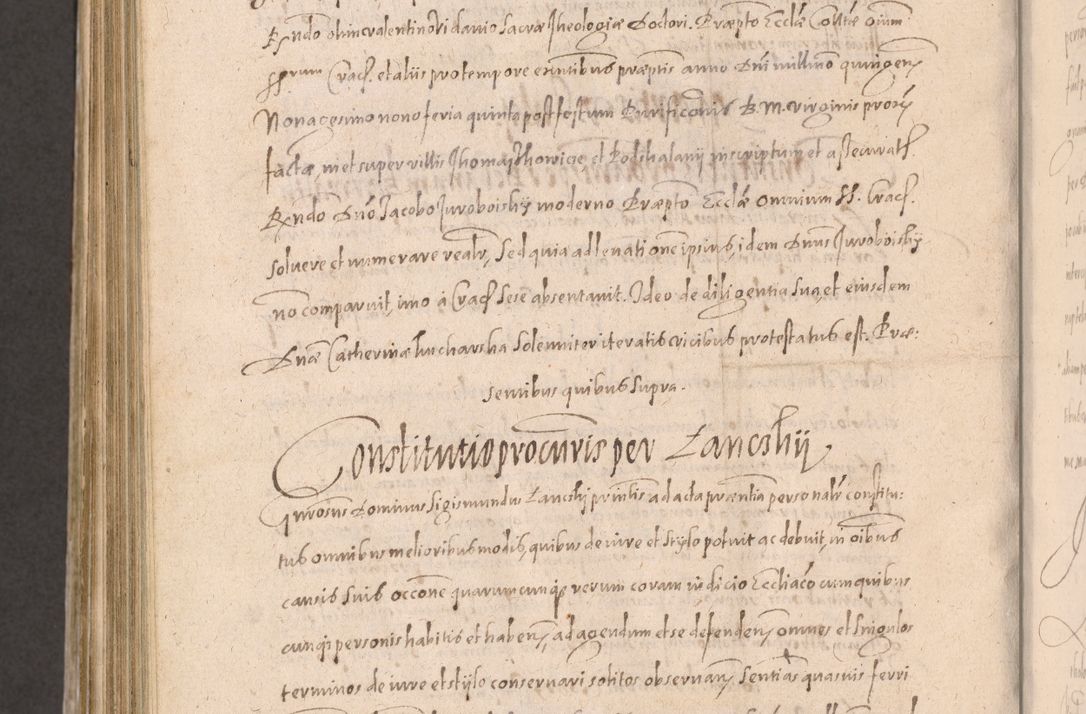 Rndo olim Valentino Vidavio Sacræ Theologiæ Doctori. Præpto Ecclæ Colltæ oium
SSrum Crac. et aliis pro tempore exntibus præptis anno Dni millmo quingen
Nonagesimo nono feria quinta post festum Purificonis B. M. virginis prox
factæ, niet super villis Thomaszhowice et Podskalany inscriptum et assecurat
Rndo Dno Jacobo Juroboisky moderno Præpto Ecclæ omnium SS. Crac.
solvere et numerare realr, Sed quia ad levationem ipsius, idem Dnus Juroboisky
non comparuit, imo à Crac Sese absentavit. Ideo de diligentia sua, et eiusdem
Dnæ Catherinæ Kucharska Solenniter iteratis vicibus protestatus est. Præ:
sentibus quibus supra.
Constitutio procuris per Lanckskii
Gnrosus Dominus Sigismundus Lancskii prntis ad acta præntia personalr constitu:
tus omnibus melioribus modis, quibus de iure et stylo potuit ac debuit, in oibus
causis suis occone quarumcunqs rerum coram iudicio Eccliaco cum quibus
cunqs personis habitis et haben, ad agendum et se defenden, omnes et singulos
terminos de iure et stylo conservari solitos observan, Sentias quasvis ferri